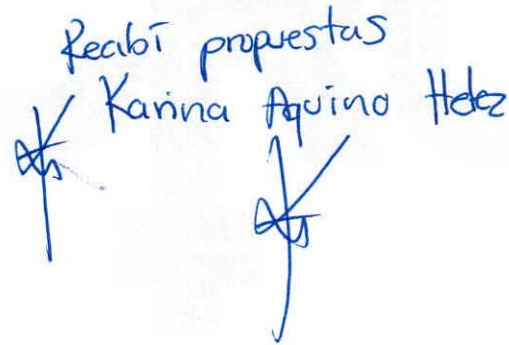 Recibí propuestas
Karina Aquino Hdez